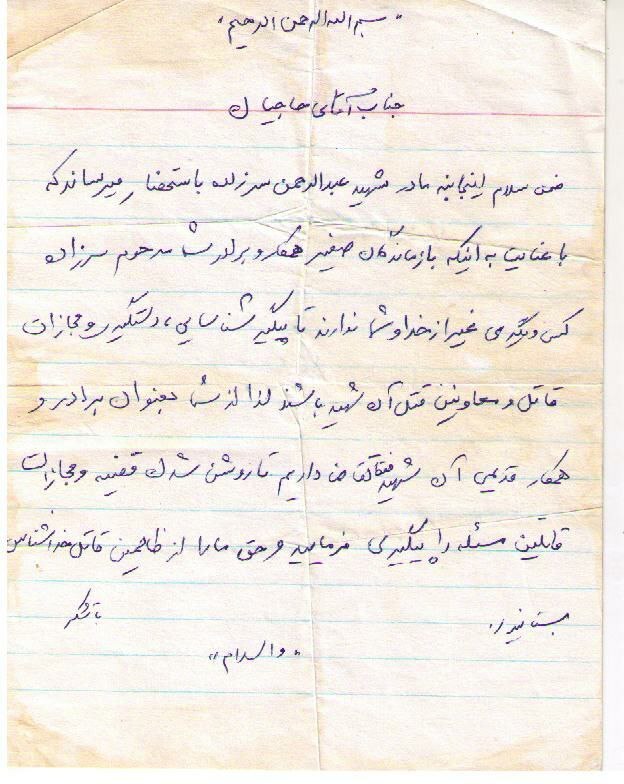 "بسم الله الرحمن الرحیم"
جناب آقای حاجیان
ضمن سلام اینجانبه مادر شهید عبدالرحمن سرزاده باستحضار میرساند که
با عنایت به اینکه بازماندگان صغیر همکار و برادر شما مرحوم سرزاده
کس دیگری غیر از خدا و شما ندارند تا پیگیر شناسایی، دستگیری و مجازات
قاتل و معاونین قتل آن شهید باشند لذا از شما بعنوان برادر و
همکار قدیمی آن شهید تقاضا داریم تا روشن شدن قضیه و مجازات
قاتلین مسئله را پیگیری فرمایید و حق ما را از ظالمین قاتل خدانشناس
بستانید.
با تشکر
"والسلام"